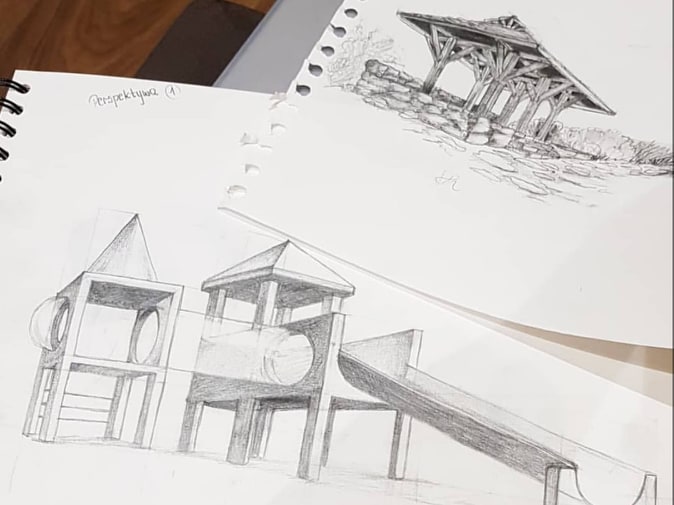 Perspektywa ①